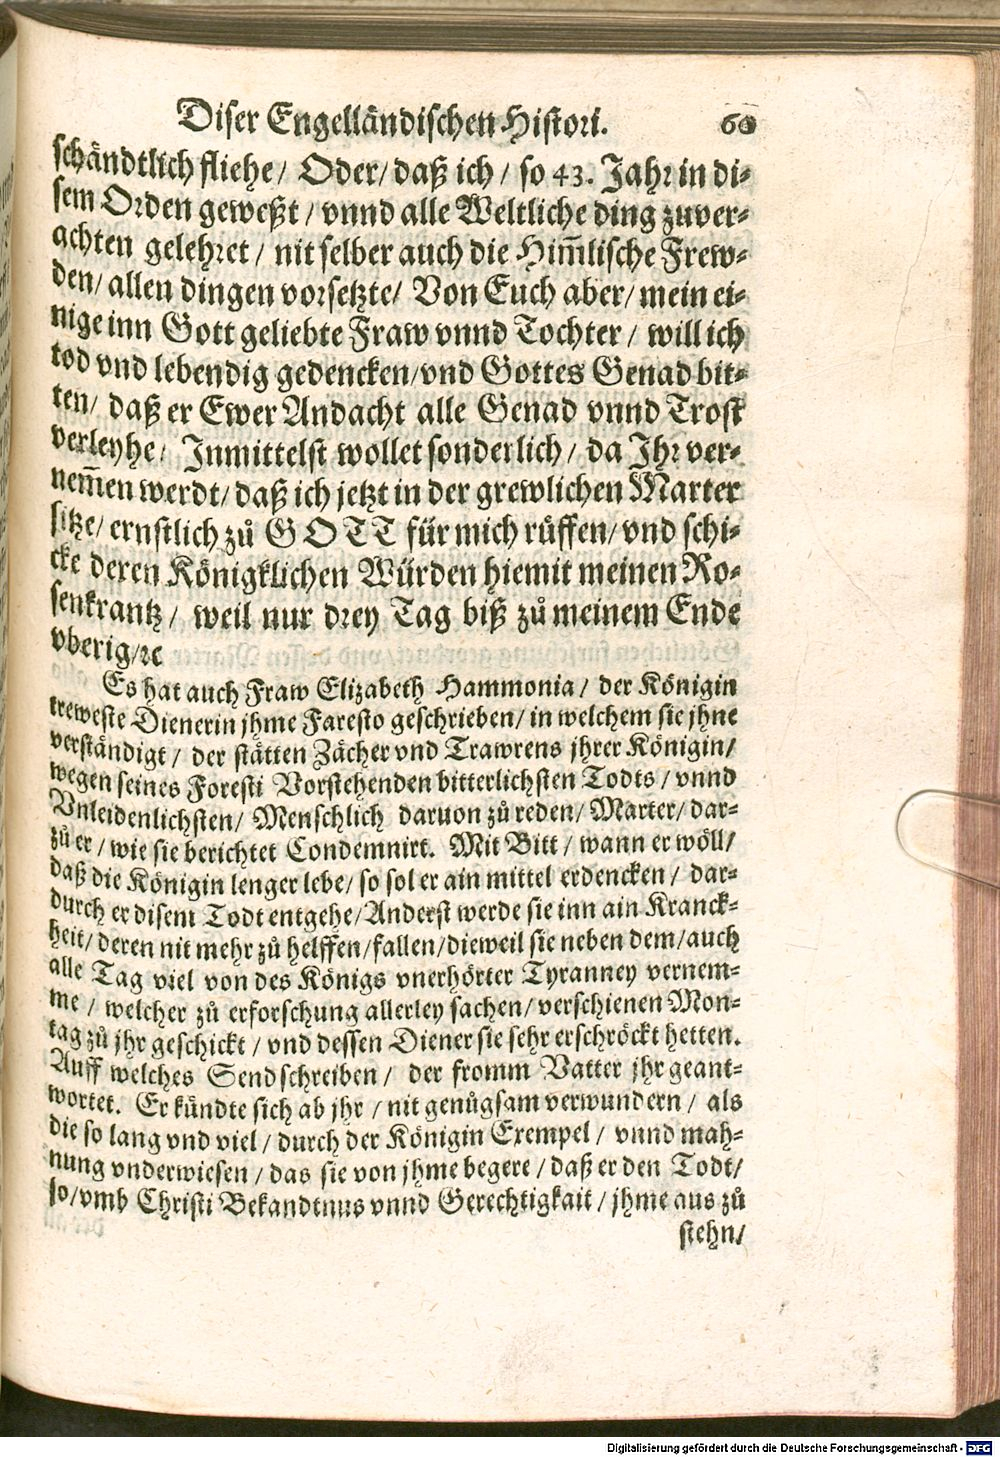 Diser Engelländischen Histori. 60
schändtlich fliehe / Oder / daß ich / so 43. Jahr in di-
sem Orden geweßt / vnnd alle Weltliche ding zuver-
achten gelehret / nit selber auch die Him̃lische Frew-
den / allen dingen vorsetzte / Von Euch aber / mein ei-
nige inn Gott geliebte Fraw vnnd Tochter / will ich
tod vnd lebendig gedencken / vnd Gottes Genad bit-
ten / daß er Ewer Andacht alle Genad vnnd Trost
verleyhe / Inmittelst wollet sonderlich / da Ihr ver-
nem̃en werdt / daß ich jetzt in der grewlichen Marter
sitze / ernstlich zů GOTT für mich růffen / vnd schi-
cke deren Königklichen Würden hiemit meinen Ro-
senkrantz / weil nur drey Tag biß zů meinem Ende
vberig / ꝛc
Es hat auch Fraw Elizabeth Hammonia / der Königin
treweste Dienerin jhme Faresto geschrieben / in welchem sie jhne
verständigt / der stätten Zächer vnd Trawrens jhrer Königin /
wegen seines Foresti Vorstehenden bitterlichsten Todts / vnnd
Vnleidenlichsten / Menschlich daruon zů reden / Marter / dar-
zů er / wie sie berichtet Condemnirt. Mit Bitt / wann er wöll /
daß die Königin lenger lebe / so sol er ain mittel erdencken / dar-
durch er disem Todt entgehe / Anderst werde sie inn ain Kranck-
heit / deren nit mehr zů helffen / fallen / dieweil sie neben dem / auch
alle Tag viel von des Königs vnerhörter Tyranney vernem-
me / welcher zů erforschung allerley sachen / verschienen Mon-
tag zů jhr geschickt / vnd dessen Diener sie sehr erschröckt hetten.
Auff welches Sendschreiben / der fromm Vatter jhr geant-
wortet. Er kündte sich ab jhr / nit genůgsam verwundern / als
die so lang vnd viel / durch der Königin Exempel / vnnd mah-
nung vnderwiesen / das sie von jhme begere / daß er den Todt /
so / vmb Christi Bekandtnus vnnd Gerechtigkait / jhme aus zů
stehn /
Digitalisierung gefördert durch die Deutsche Forschungsgemeinschaft - DFG